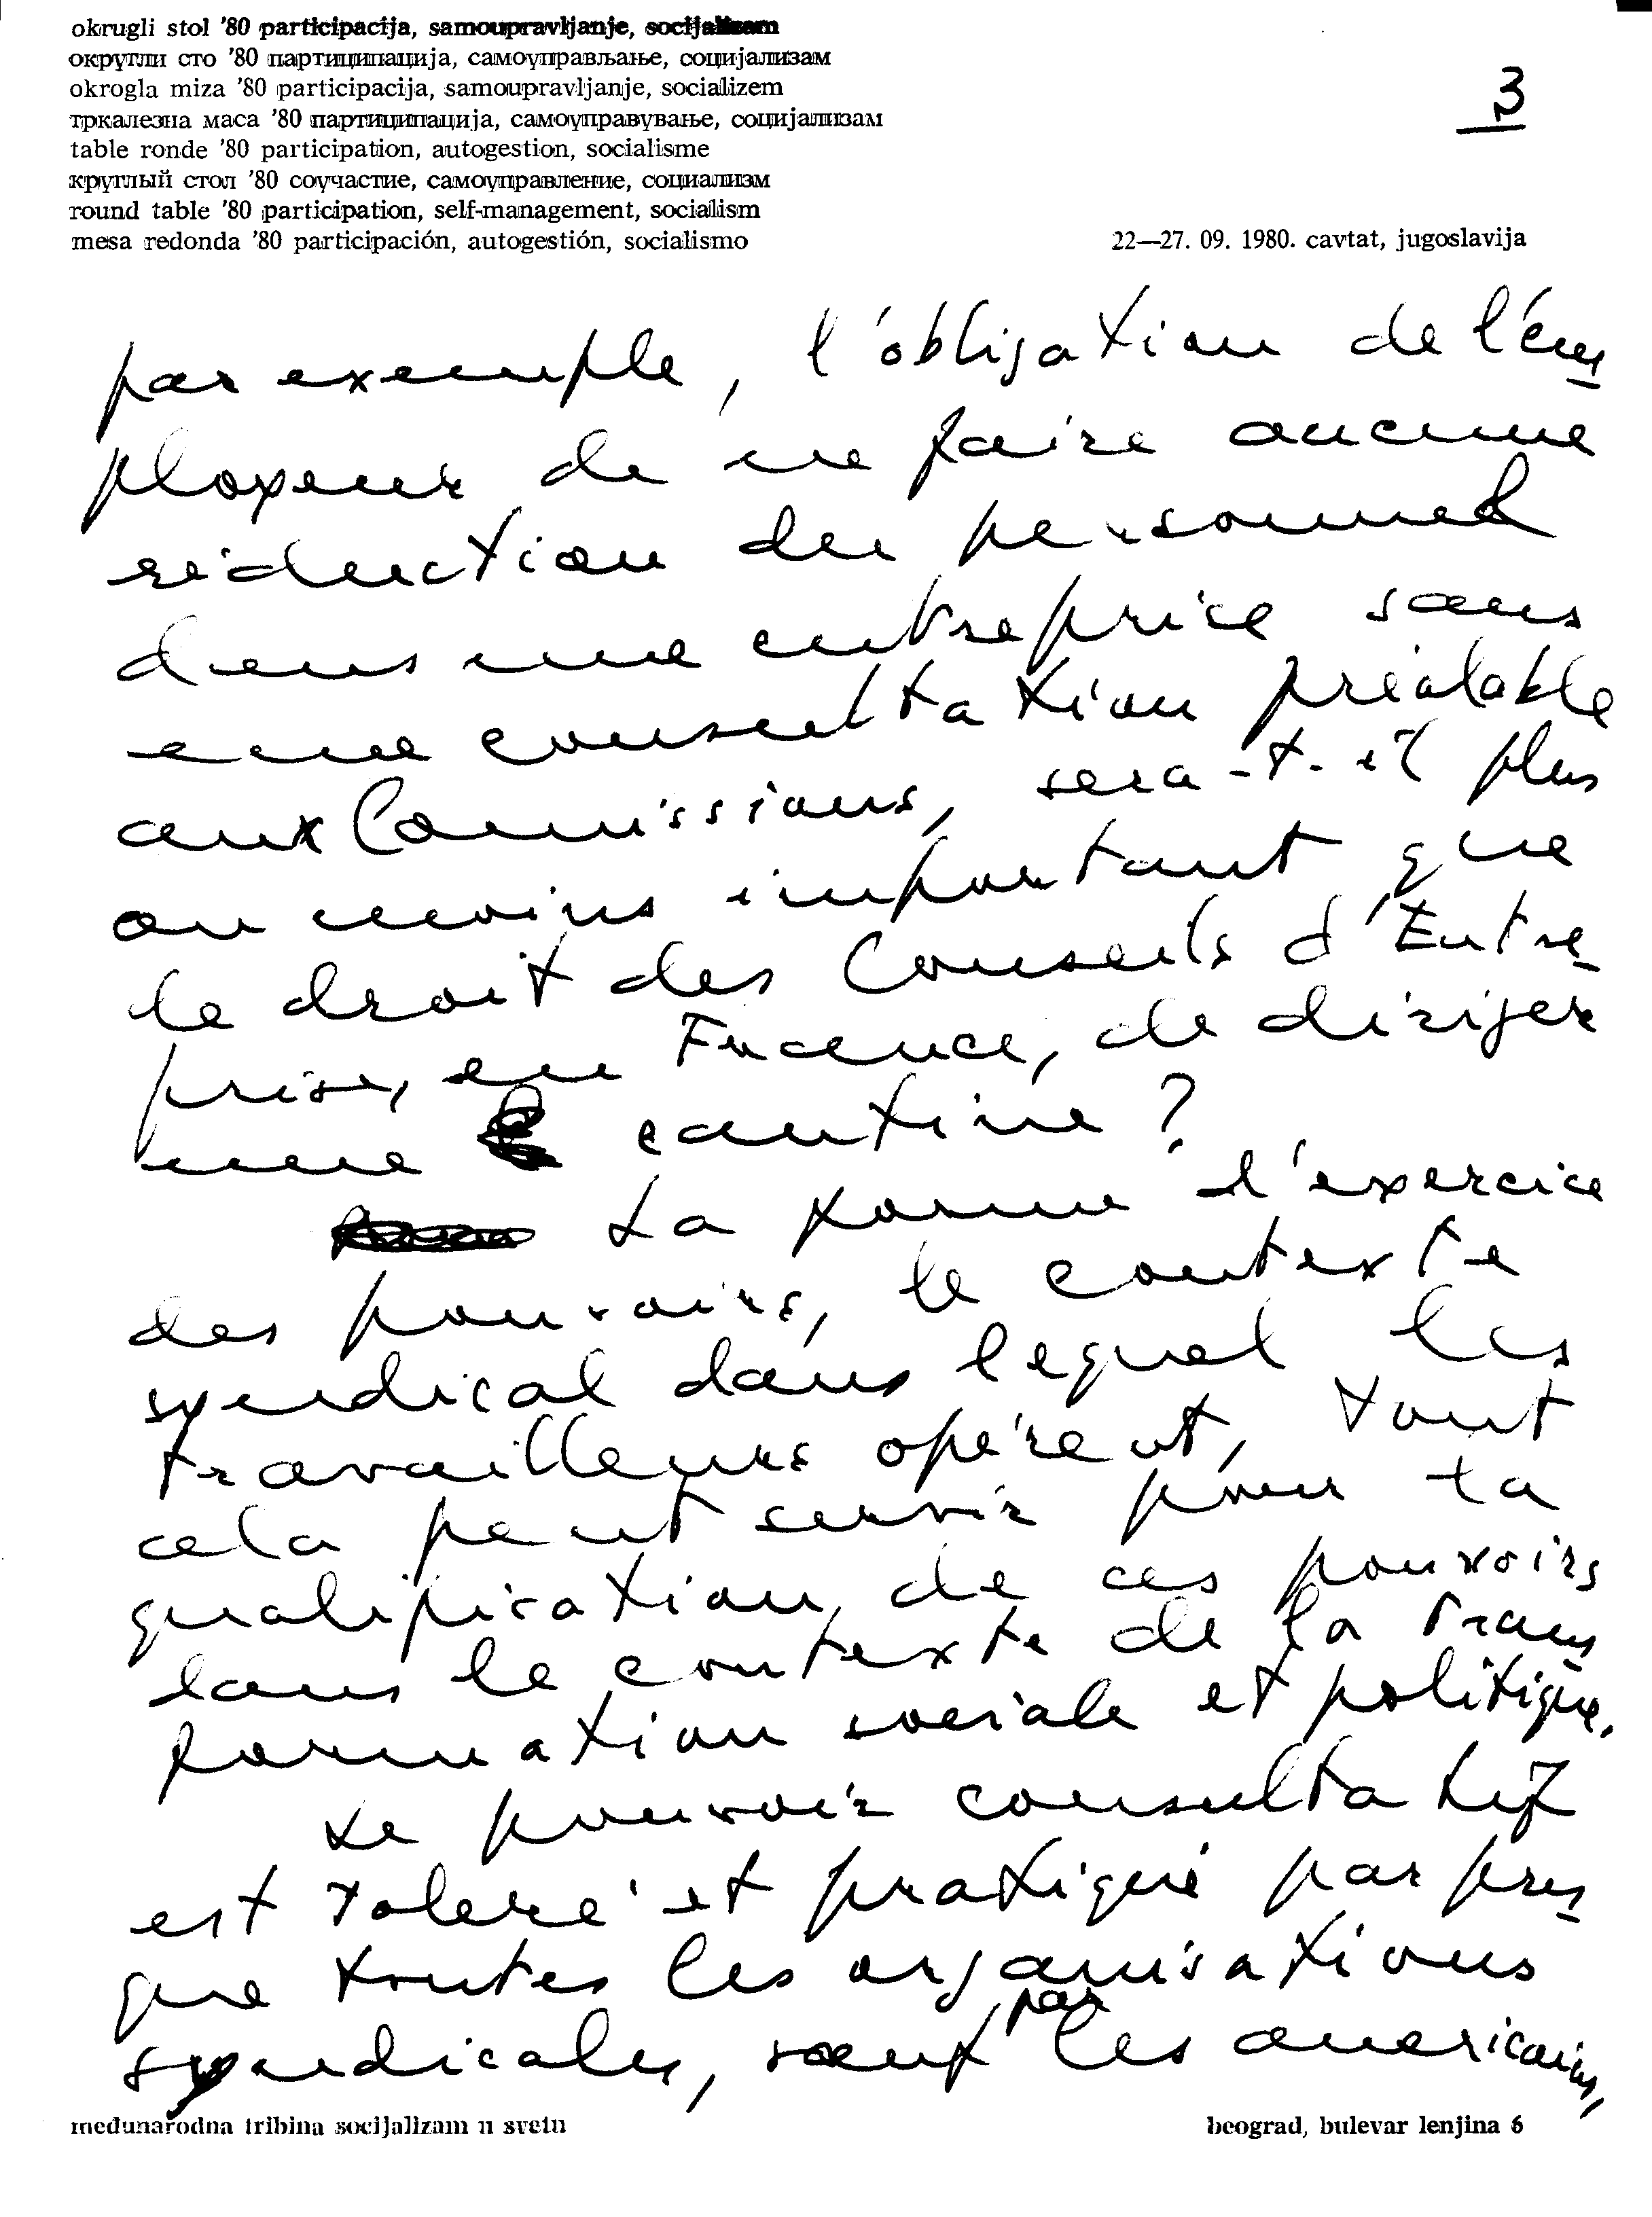 okrugli stol '80 participacija, samoupravljanje, socijalizam
округли сто '80 партиципација, самоуправљање, социјализам
okrogla miza '80 participacija, samoupravljanje, socializem
тркалезна маса '80 партиципација, самоуправување, социјализам
table ronde '80 participation, autogestion, socialisme
круглый стол '80 соучастие, самоуправление, социализм
round table '80 participation, self-management, socialism
mesa redonda '80 participación, autogestión, socialismo
3
22—27. 09. 1980. cavtat, jugoslavija
par exemple, l'obligation de l'em
ployeur de ne faire aucune
réduction du personnel
dans une entreprise sans
une consultation préalable
aux Comissions, sera-t-il plus
ou moins important que
le droit des Conseils d'Entre
prise, en France, de diriger
une cantine?
La forme d'exercice
des pouvoirs, le contexte
syndical dans lequel les
travailleurs opérent, tout
cela peut servir pour la
qualification de ces pouvoirs
dans le contexte de la trans
formation sociale et politique.
Le pouvoir consultatif
est toleré et pratiqué par pres
que toutes les organisations
syndicales, sauf par les americains,
međunarodna tribina socijalizam u svetu
beograd, bulevar lenjina 6